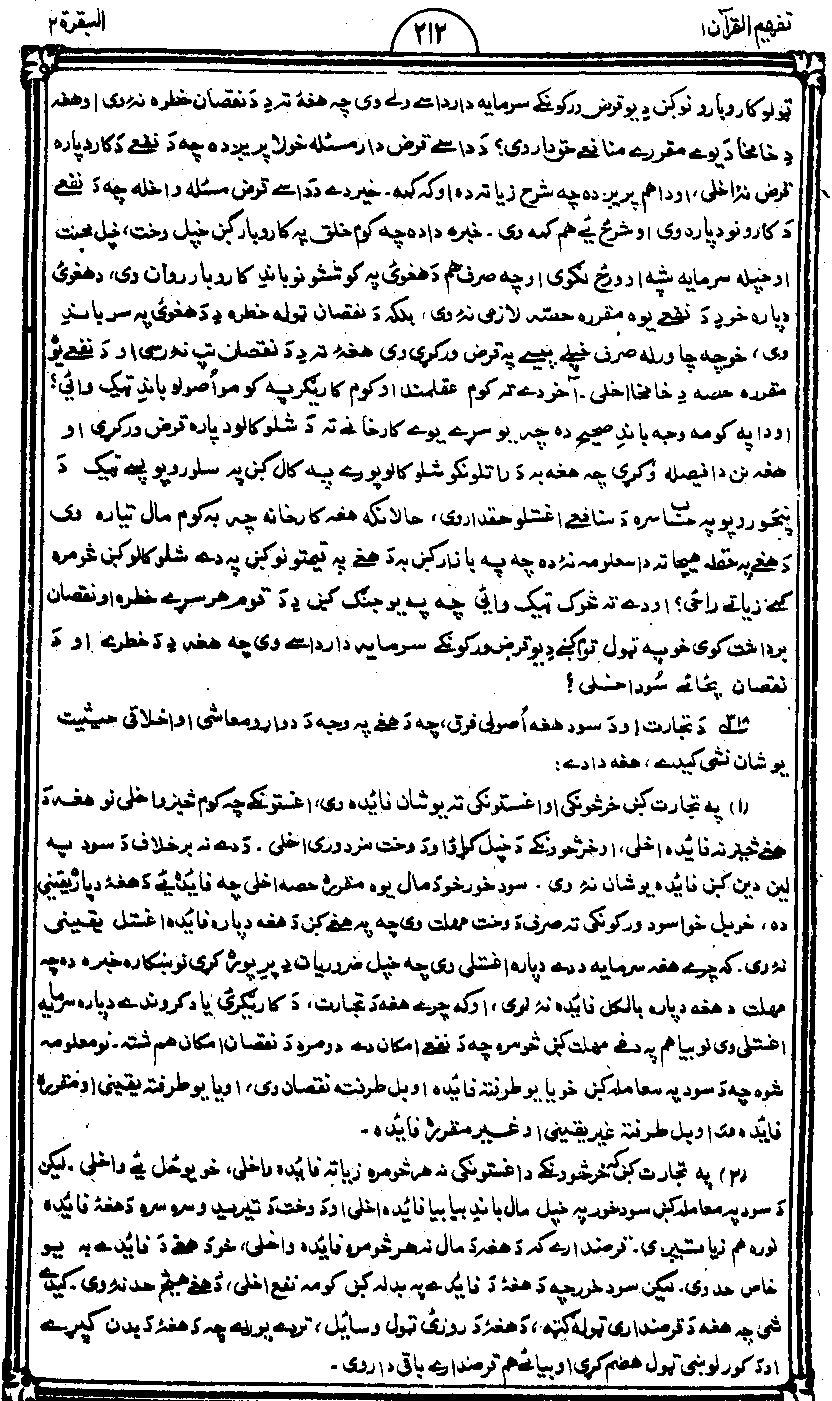 تفهيم القرآن ۱
۲۱۲
البقرة ۲
ټولو کاروبارونو کښ د يو قرض ورکونکے سرمايه دار داسے ولے وی چه هغۀ ته د د نقصان خطره نۀ وی او هغه
د خامخا د يوے مقررے منافعے حق دار وی؟ د داسے قرض دار مسئله خو لا پريږده چه د نفعے د کار دپاره
قرض نۀ اخلی، او دا هم پريږده چه شرح زياته ده او که کمه ـ خير دے د داسے قرض مسئله واخله چه د نفعے
د کارونو دپاره وی او شرح ئے هم کمه وی ـ خبره دا ده چه کوم خلق په کاروبار کښ خپل وخت، خپل محنت
او خپله سرمايه شپه او ورځ لګوی او چه صرف هم د هغوئ په کوششونو باندِ کاروبار روان وی، د هغوئ
دپاره خو د د نفعے يوه مقرره حصّه لازمی نۀ وی، بلکه د نقصان ټوله خطره د د هغوئ په سر باندِ
وی، خو چه چا ورله صرف خپلے پيسے په قرض ورکړی وی هغۀ ته د د نقصان تپ نۀ رسی او د نفعے يو
مقرره حصه د خامخا اخلی ـ آخر دے ته کوم عقلمند او کوم کاريګر په کومو اُصولو باندِ ټيک وائی؟
او دا په کومه وجه باندِ صحيح ده چه يو سړے يوے کارخانے ته د شلو کالو دپاره قرض ورکړی او
هغه نن دا فيصله وُکړی چه هغه به د راتلونکو شلو کالو پورے په کال کښ په سلو روپو پسے ټيک د
پنځو روپو په حساب سره د منافعے اغستلو حقدار وی، حالانکه هغه کارخانه چه به کوم مال تياره وی
د هغے په حقله هيچا ته دا معلومه نۀ ده چه په بازار کښ به د هغے په قيمتونو کښ په دے شلو کالو کښ څومره
کمے زياتے راځی؟ او دے ته څوک ټيک وائی چه په يو جنګ کښ د د قوم هر سړے خطره او نقصان
برداشت کوی خو په ټول قوم کښے د يو قرض ورکونکے سرمايه دار داسے وی چه هغه د د خطرے او د
نقصان پځائے سُود اخلی؟
د تجارت او د سود هغه اُصولی فرق، چه د هغے په وجه د دواړو معاشی او اخلاقی حيثيت
يو شان نشی کيدے، هغه دا دے:
(۱) په تجارت کښ خرڅونکی او اغستونکی ته يو شان فائده وی، اغستونکے چه کوم څيز واخلی نو هغه د
هغے څيز نه فائده اخلی، او خرڅونکے د خپل کړاؤ او د وخت مزدوری اخلی ـ د دے نه برخلاف د سود په
لين دين کښ فائده يو شان نۀ وی ـ سود خور خو د مال يوه مقرره حصه اخلی چه فائده ئے د هغۀ دپاره يقينی
ده، خو بل خوا سود ورکونکی ته صرف د وخت مهلت وی چه په هغے کښ د هغه دپاره فائده اغستل يقينی
نۀ وی ـ که چرے هغه سرمايه د دے دپاره اغستلی وی چه خپل ضروريات پرے پوره کړی نو ښکاره خبره ده چه
مهلت د هغه دپاره بالکل فائده نۀ لری، او که چرے هغه د تجارت، د کاريګرئ يا د کروندے دپاره سرمايه
اغستلی وی نو بيا هم په دغے مهلت کښ څومره چه د نفعے امکان دے دومره د نقصان امکان هم شته ـ نو معلومه
شوه چه د سود په معامله کښ خو يا يو طرفته فائده او بل طرفته نقصان وی، او يا يو طرفته يقينی او مقرره
فائده وی او بل طرفته غير يقينی او غير مقرره فائده ـ
(۲) په تجارت کښ که خرڅونکے د اغستونکی نه هر څومره زياته فائده واخلی، خو يو ځل ئے واخلی ـ ليکن
د سود په معامله کښ سود خور په خپل مال باندِ بيا بيا فائده اخلی او د وخت د تيريدو سره سره د هغۀ فائده
لوره هم زياتيږی ـ قرضدارے که د هغه د مال نه هر څومره فائده واخلی، خو د هغے د فائدے به يو
خاص حد وی، ليکن سود خور چه د هغۀ د فائدے په بدله کښ کومه نفع اخلی، د هغے هيڅ حد نۀ وی ـ کيدے
شی چه هغه د قرضداری ټوله ګټه، د هغۀ د روزئ ټول وسائل، تردے پورے چه د هغۀ د بدن کپړے
او د کور لوښی ټول هضم کړی او بيا ئے هم قرضدارے باقی دار وی ـ